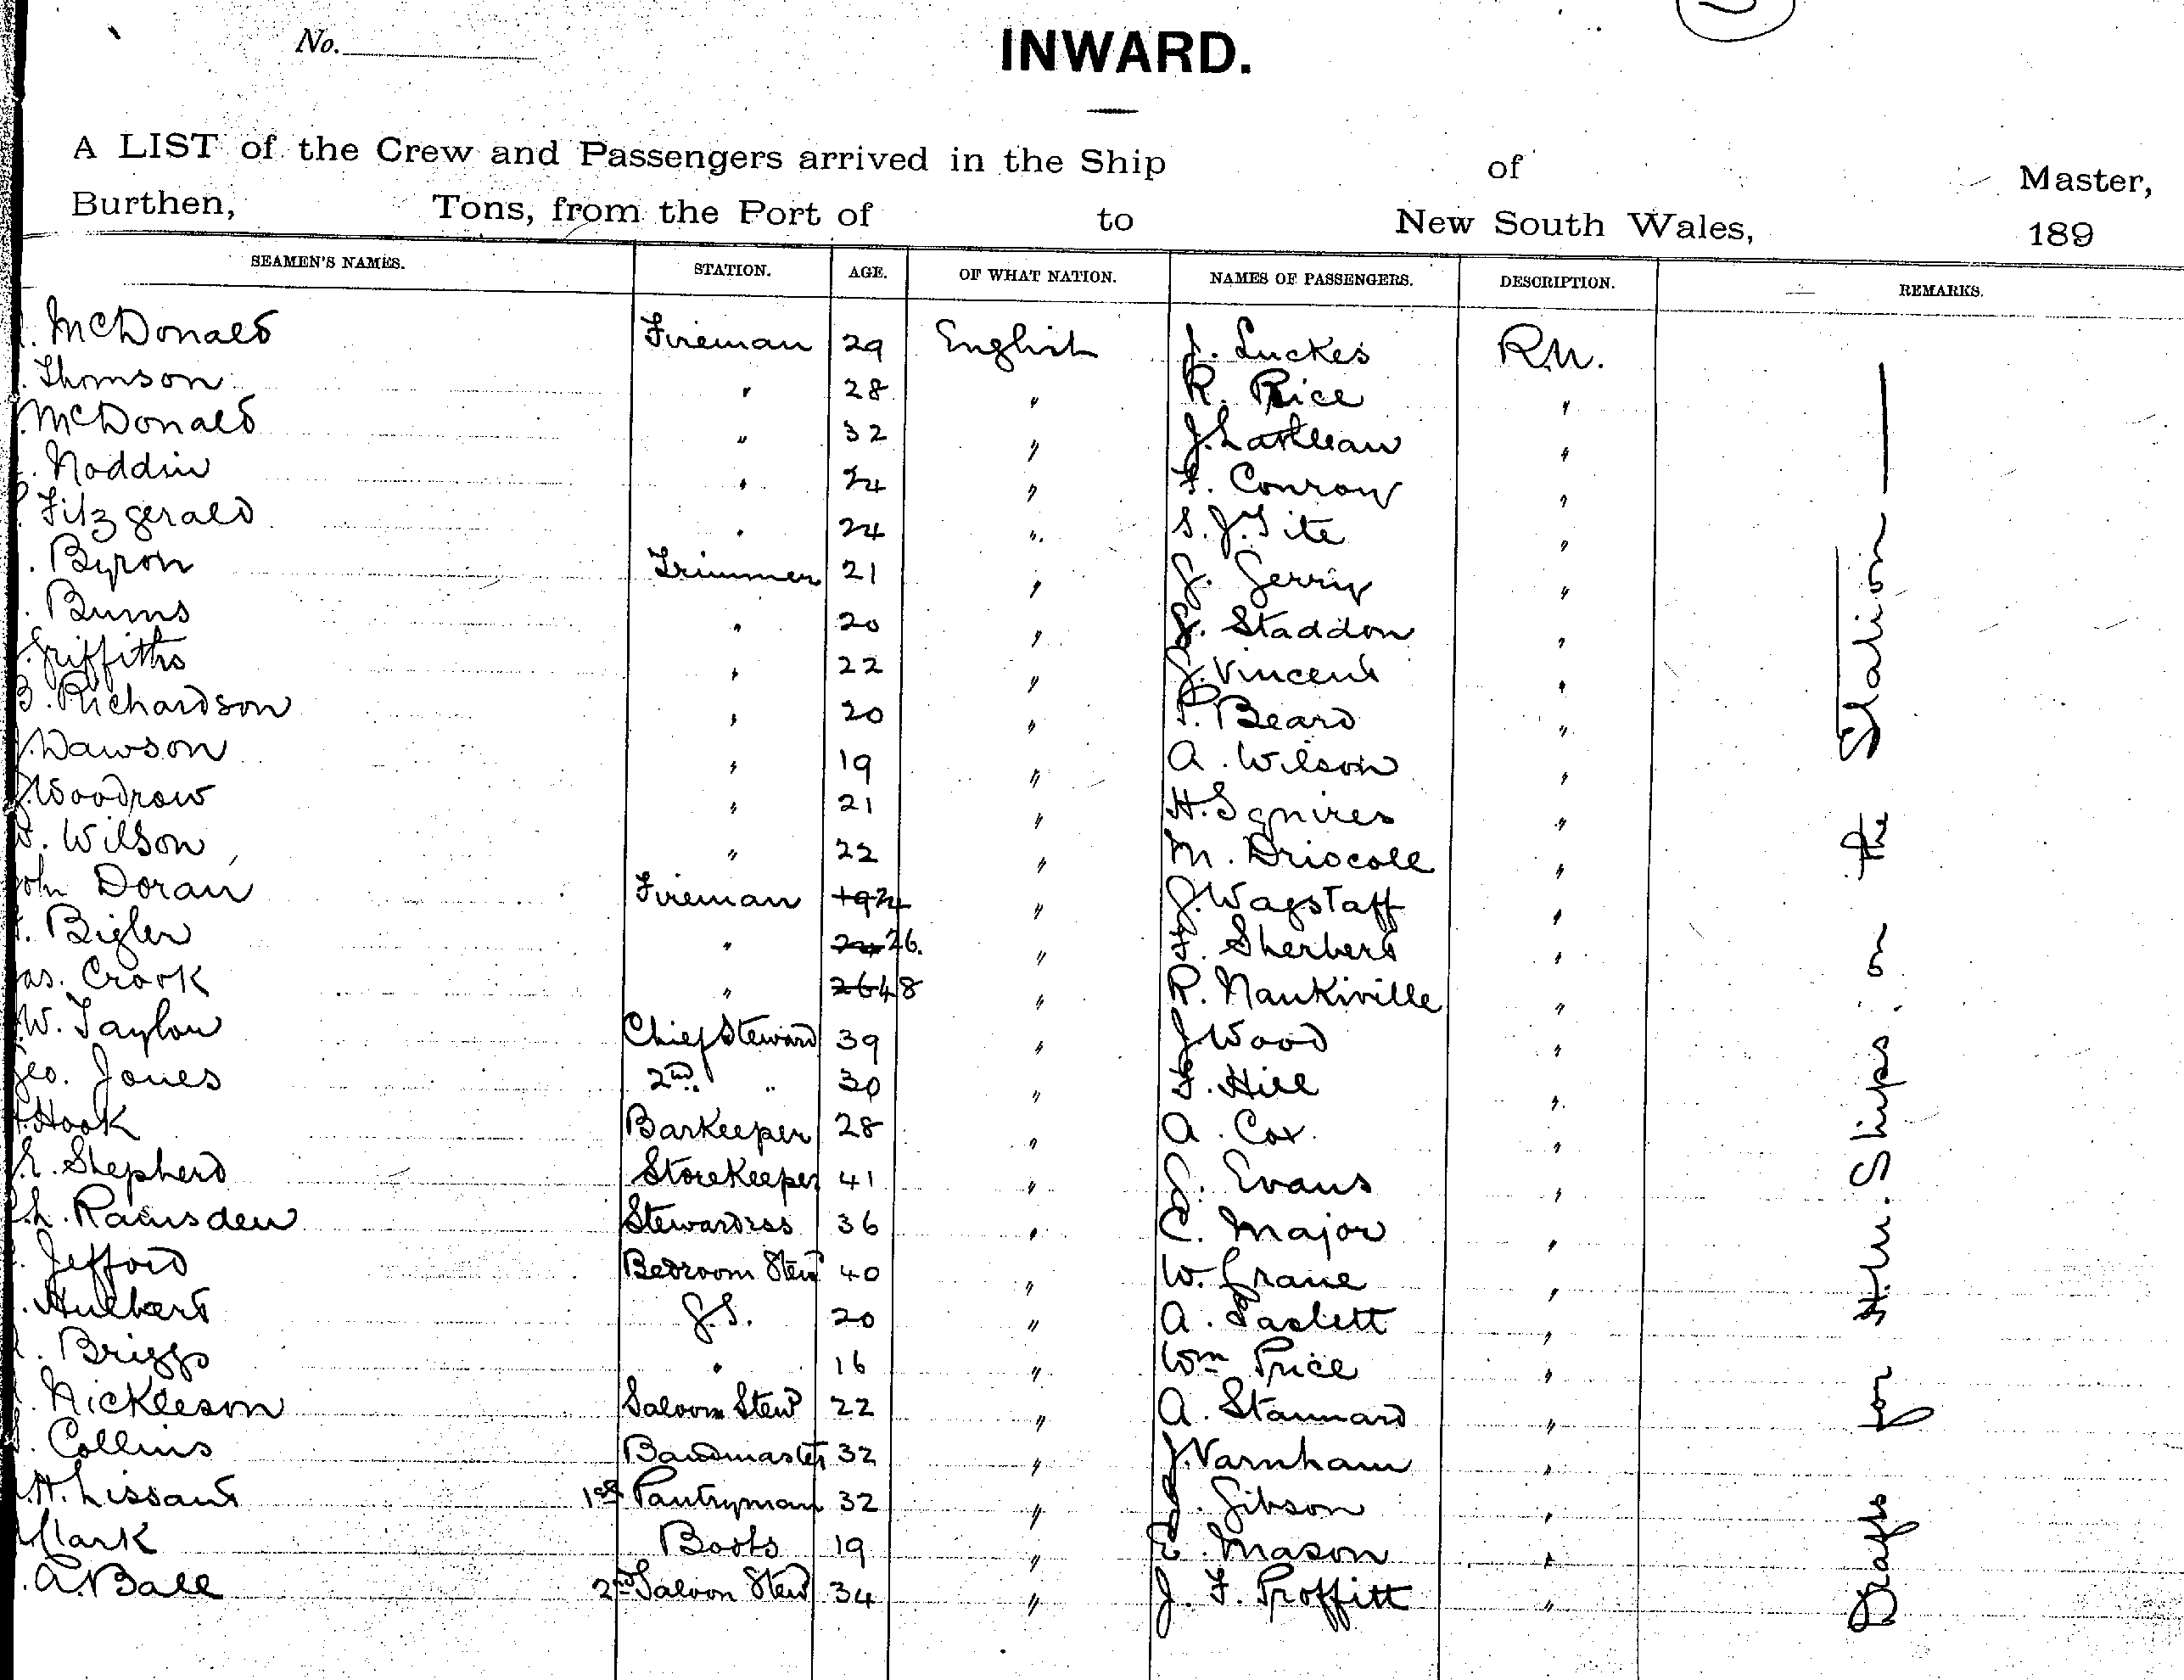 No.
INWARD.
A LIST of the Crew and Passengers arrived in the Ship of Master,
Burthen, Tons, from the Port of to New South Wales, 189
SEAMEN'S NAMES. STATION. AGE. OF WHAT NATION. NAMES OF PASSENGERS. DESCRIPTION. REMARKS.
McDonald Fireman 29 English J. Luckes R.N.
Thomson " 28 " R. Rice "
McDonald " 32 " J. "
Noddin " 24 " F. Conroy "
Fitzgerald " 24 " S. J. Tite "
Byron Trimmer 21 " G. Gerry "
Burns " 20 " Staddon "
Griffiths " 22 " G. Vincent "
B. Richardson " 20 " P. Beard "
Dawson " 19 " A. Wilson "
Woodrow " 21 " H. Squires "
Wilson " 22 " M. Driscoll "
John Doran Fireman 19 24 " J. Wagstaff "
Bigler " 24 26. " Sherbert "
Jas. Crook " 26 48 " R. Nankiville "
W. Taylor Chief Steward 39 " J Wood "
Geo. Jones 2nd " 30 " Hill "
Hook BarKeeper 28 " A. Cox "
E. Shepherd StoreKeeper 41 " Evans "
L. Ramsden Stewardess 36 " C. Major "
Jefford Bedroom Stewd 40 " W. Crane "
Hulbert G.S. 20 " A. Paslett "
Briggs " 16 " Wm Price "
Nickleson Saloon Stewd 22 " A. Stannard "
Collins Bandmaster 32 " J. Varnham "
H. Lissant 1st Pantryman 32 " Gibson "
Clark Boots 19 " E. Mason "
A. Ball 2nd Saloon Stewd 34 " J. F. Proffitt "
Drafts for H.M. Ships on the Station